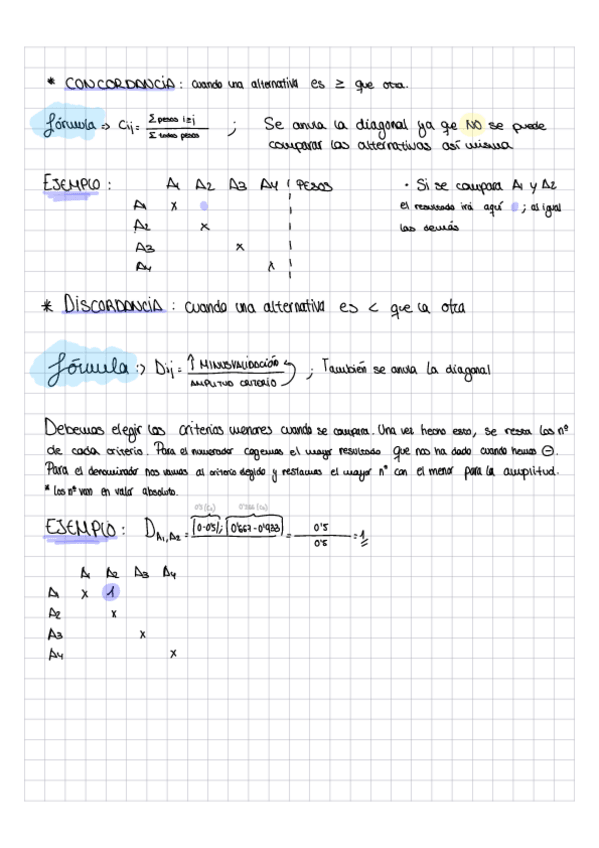 * CONCORDANCIA : cuando una alternativa es ≥ que otra.
fórmula => Cij = Σ pesos i≥j / Σ todos pesos ; Se anula la diagonal ya qe NO se puede
comparar las alternativas así misma
EJEMPLO : A1 A2 A3 A4 PESOS · Si se compara A1 y A2
A1 x el resultado irá aquí ; al igual
A2 x las demás
A3 x
A4 x
* DISCORDANCIA : cuando una alternativa es < que la otra
fórmula :> Dij = ↑ MINUSVALIDACIÓN / AMPLITUD CRITERIO ; También se anula la diagonal
Debemos elegir los criterios menores cuando se compara. Una vez hecho esto, se resta los nº
de cada criterio. Para el numerador cogemos el mayor resultado que nos ha dado cuando hemos ⊖.
Para el denominador nos vamos al criterio elegido y restamos el mayor nº con el menor para la amplitud.
* los nº van en valor absoluto.
EJEMPLO : D A1,A2 = |0-0'5|; |0'667-0'933| = 0'5 / 0'5 = 1
A1 A2 A3 A4
A1 x 1
A2 x
A3 x
A4 x